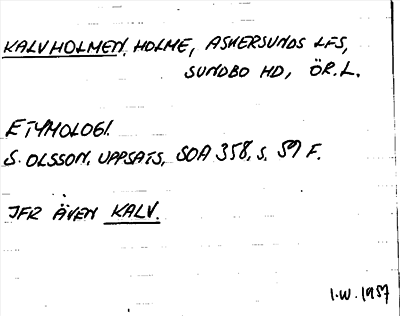 KALVHOLMEN, HOLME, ASKERSUNDS LFS,
SUNDBO HD, ÖR.L.
ETYMOLOGI.
S. OLSSON, UPPSATS, SOA 358, S. 59 F.
JFR ÄVEN KALV.
I.W. 1957